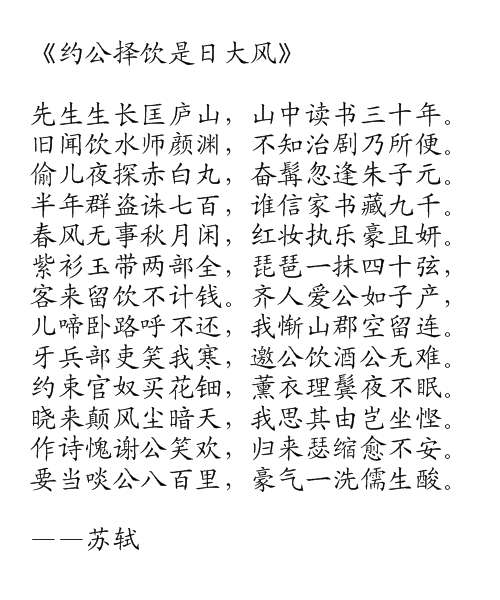 《约公择饮是日大风》
先生生长匡庐山，山中读书三十年。
旧闻饮水师颜渊，不知治剧乃所便。
偷儿夜探赤白丸，奋髯忽逢朱子元。
半年群盗诛七百，谁信家书藏九千。
春风无事秋月闲，红妆执乐豪且妍。
紫衫玉带两部全，琵琶一抹四十弦，
客来留饮不计钱。齐人爱公如子产，
儿啼卧路呼不还，我惭山郡空留连。
牙兵部吏笑我寒，邀公饮酒公无难。
约束官奴买花钿，薰衣理鬓夜不眠。
晓来颠风尘暗天，我思其由岂坐悭。
作诗愧谢公笑欢，归来瑟缩愈不安。
要当啖公八百里，豪气一洗儒生酸。
——苏轼